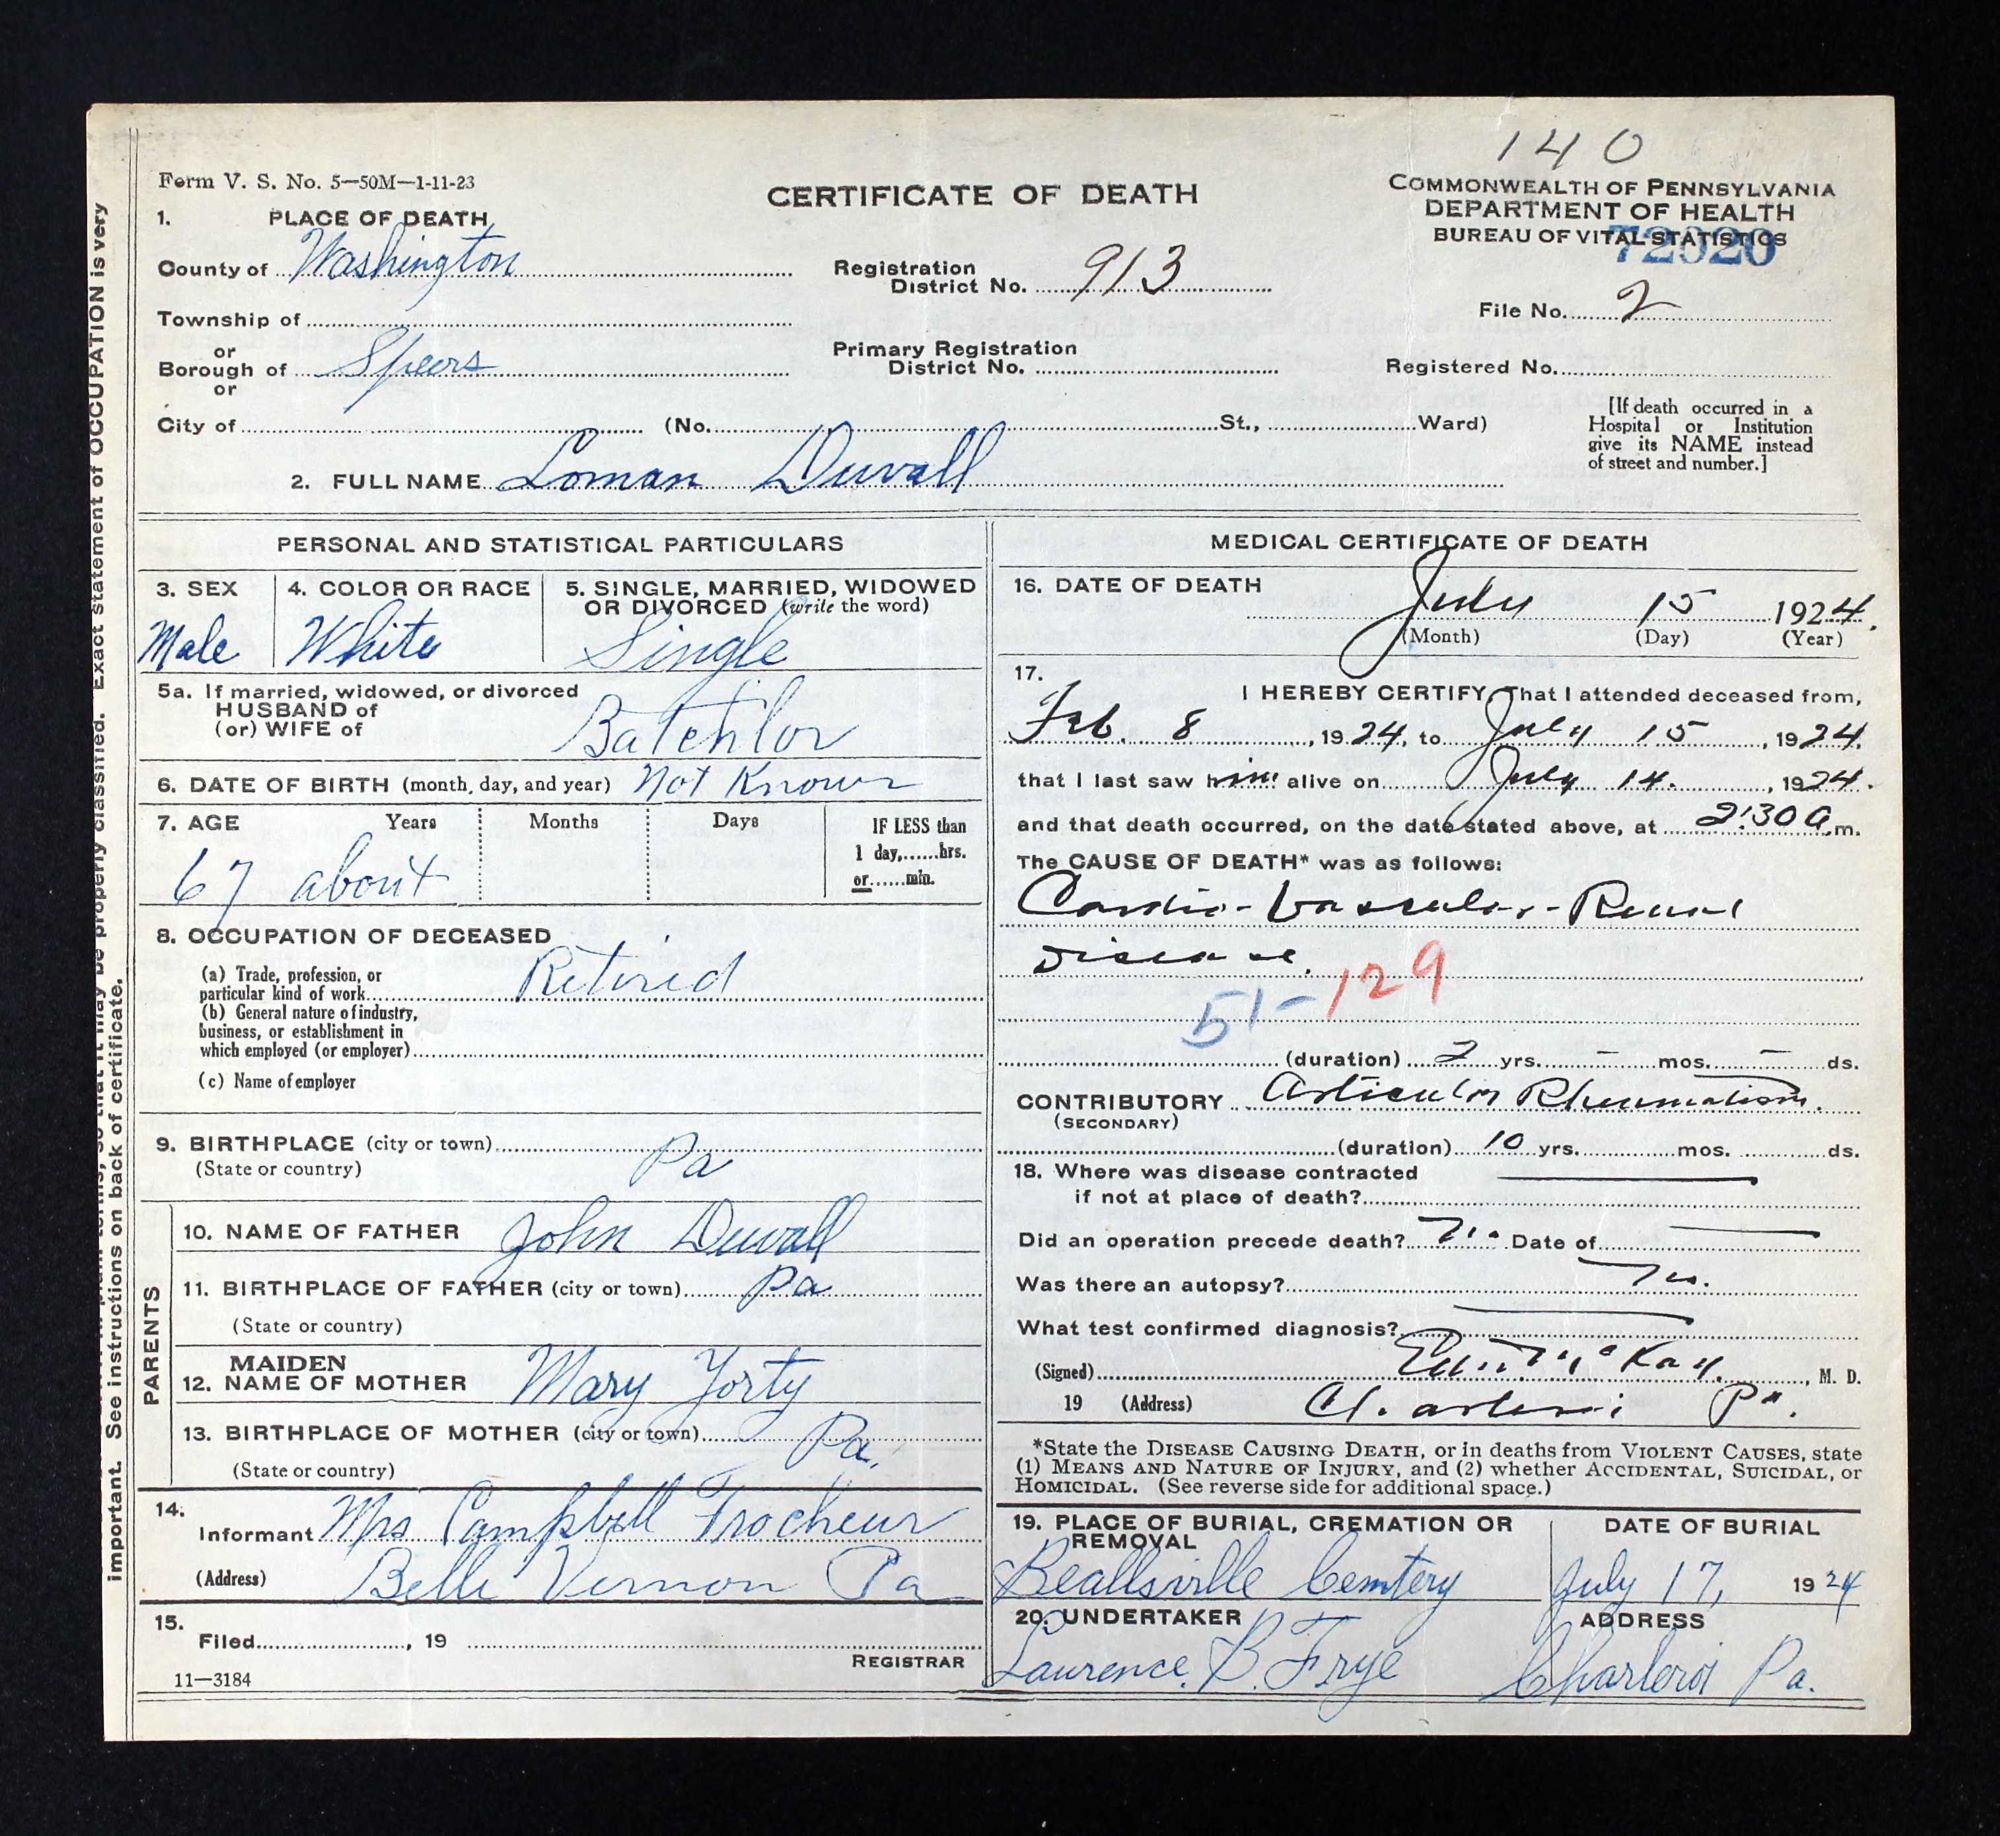 140
Form V. S. No. 5—50M—1-11-23
CERTIFICATE OF DEATH
COMMONWEALTH OF PENNSYLVANIA
DEPARTMENT OF HEALTH
BUREAU OF VITAL STATISTICS
72020
1. PLACE OF DEATH
County of Washington
Registration
District No. 913
File No. 2
Township of
or
Borough of Speers
or
Primary Registration
District No.
Registered No.
City of (No. St., Ward)
[If death occurred in a
Hospital or Institution
give its NAME instead
of street and number.]
2. FULL NAME Loman Duvall
PERSONAL AND STATISTICAL PARTICULARS
3. SEX
Male
4. COLOR OR RACE
White
5. SINGLE, MARRIED, WIDOWED
OR DIVORCED (write the word)
Single
5a. If married, widowed, or divorced
HUSBAND of
(or) WIFE of
Batchlor
6. DATE OF BIRTH (month, day, and year) Not Known
7. AGE Years Months Days
67 about
IF LESS than
1 day,......hrs.
or......min.
8. OCCUPATION OF DECEASED
(a) Trade, profession, or
particular kind of work Retired
(b) General nature of industry,
business, or establishment in
which employed (or employer)
(c) Name of employer
9. BIRTHPLACE (city or town)
(State or country) Pa
PARENTS
10. NAME OF FATHER John Duvall
11. BIRTHPLACE OF FATHER (city or town) Pa
(State or country)
12. MAIDEN
NAME OF MOTHER Mary Yorty
13. BIRTHPLACE OF MOTHER (city or town) Pa.
(State or country)
14.
Informant Mrs Campbell Frocheur
(Address) Belle Vernon Pa
15.
Filed , 19
REGISTRAR
11—3184
MEDICAL CERTIFICATE OF DEATH
16. DATE OF DEATH
July 15 1924.
(Month) (Day) (Year)
17.
I HEREBY CERTIFY, That I attended deceased from,
Feb. 8, 1924, to July 15, 1924.
that I last saw him alive on July 14., 1924.
and that death occurred, on the date stated above, at 2:30 a.m.
The CAUSE OF DEATH* was as follows:
Cardio-Vascular-Renal
Disease.
51-129
(duration) 2 yrs. – mos. – ds.
CONTRIBUTORY Articular Rheumatism.
(SECONDARY)
(duration) 10 yrs. mos. ds.
18. Where was disease contracted
if not at place of death?
Did an operation precede death? No Date of
Was there an autopsy? No.
What test confirmed diagnosis?
(Signed) McKay, M. D.
19 (Address) Charleroi Pa.
*State the DISEASE CAUSING DEATH, or in deaths from VIOLENT CAUSES, state
(1) MEANS AND NATURE OF INJURY, and (2) whether ACCIDENTAL, SUICIDAL, or
HOMICIDAL. (See reverse side for additional space.)
19. PLACE OF BURIAL, CREMATION OR
REMOVAL
Beallsville Cemtery
DATE OF BURIAL
July 17, 1924
20. UNDERTAKER
Laurence. B. Frye
ADDRESS
Charleroi Pa.
so that it may be properly classified. Exact statement of OCCUPATION is very
important. See instructions on back of certificate.